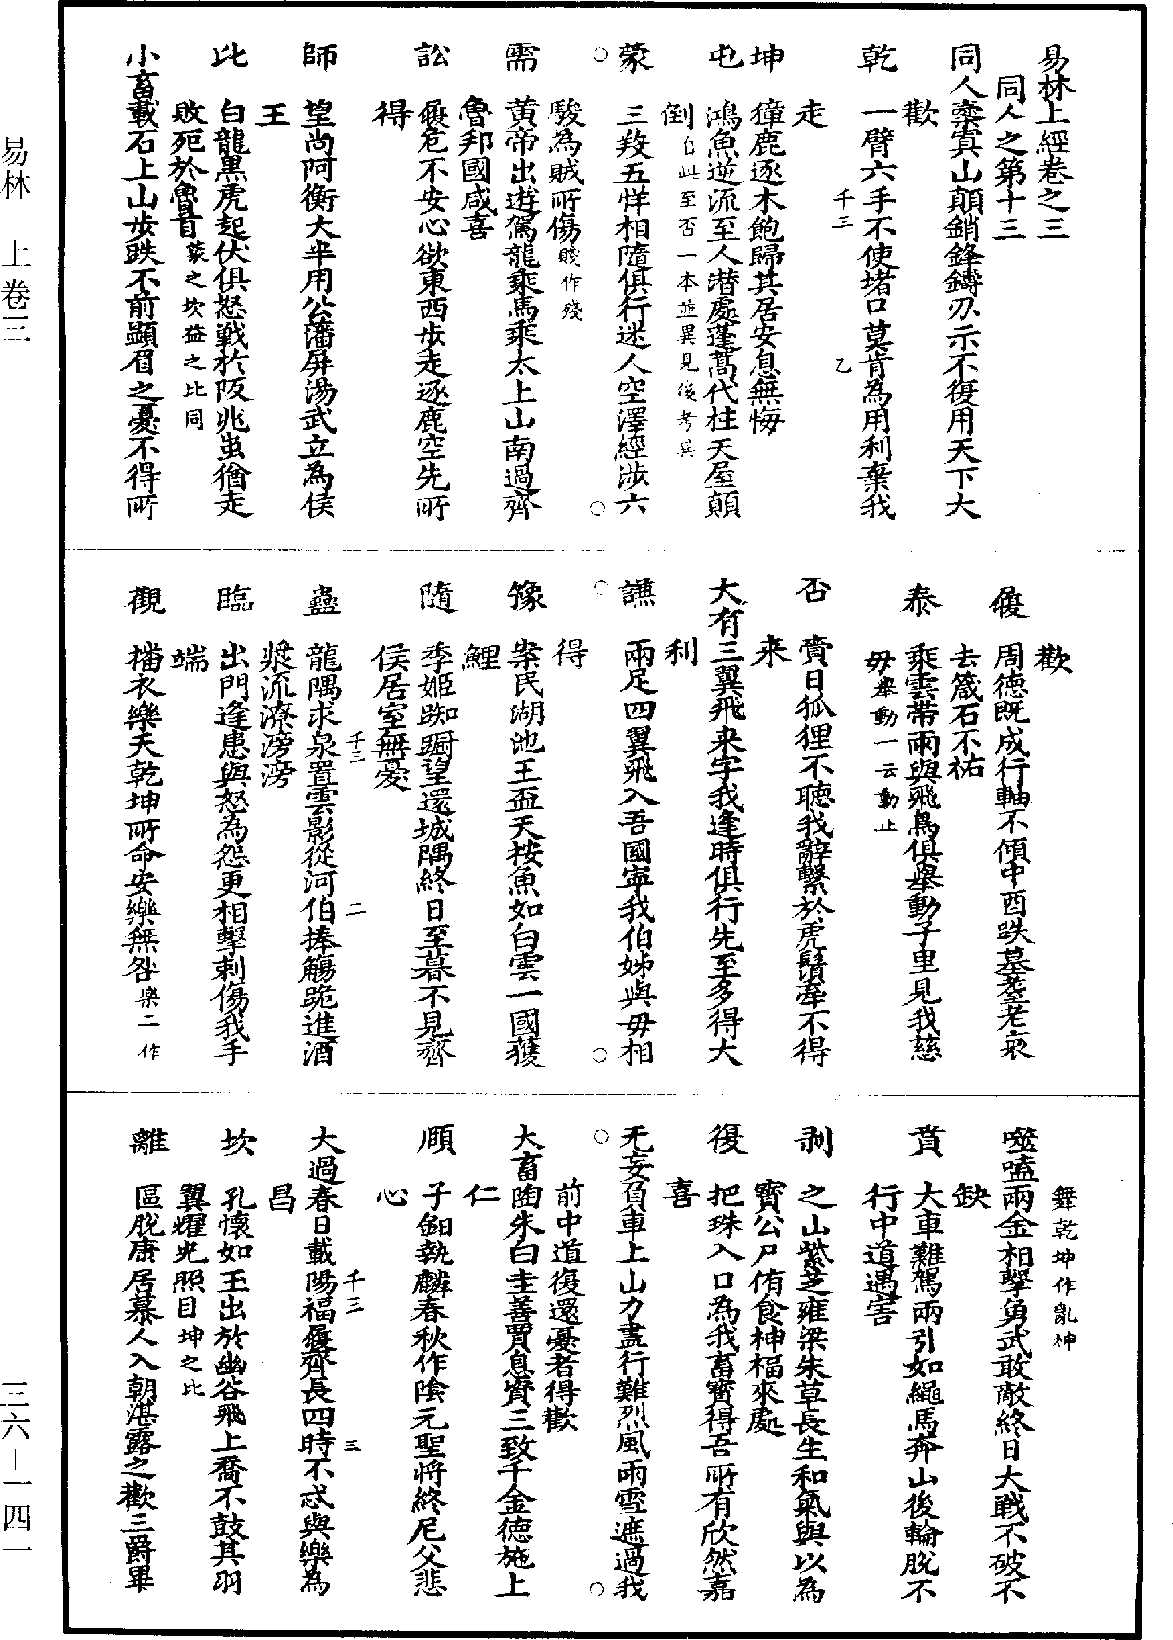 易林上經卷之三
同人之第十三
同人橐真山顛銷鋒鑄刃示不復用天下大
歡
乾 一臂六手不使堵口莫肯為用利棄我
千三 乙
走
坤 獐鹿逐木飽歸其居安息無悔
屯 鴻魚逆流至人潜處蓬蒿代柱天屋顛
倒自此至否一本並異見後考異
蒙 三羖五牂相隨俱行迷人空澤經涉六
駮為賊所傷賊作殘
需 黄帝出遊駕龍乘馬乘太上山南過齊
魯邦國咸喜
訟 履危不安心欲東西步走逐鹿空先所
得
師 望尚阿衡大半用公藩屏湯武立為侯
王
比 白龍黑虎起伏俱怒戰於阪兆蚩猶走
敗死於魯首蒙之坎益之比同
小畜載石上山步跌不前顯眉之憂不得所
歡
履 周德既成行軸不傾中酉跌墓耋老衰
去箴石不祐
泰 乘雲帶雨與飛鳥俱舉動千里見我慈
毋舉動一云動止
否 賣日狐狸不聴我辭繫於虎鬚牽不得
来
大有三翼飛来字我逢時俱行先至多得大
利
謙 兩足四翼飛入吾國寧我伯姊與毋相
得
豫 案民湖池王盃天按魚如白雲一國獲
鯉
隨 季姬踟躕望還城隅終日至暮不見齊
侯居室無憂
蠱 龍隅求泉置雲影從河伯捧觴跪進酒
千三 二
漿流潦滂滂
臨 出門逢患與怒為怨更相擊刺傷我手
端
觀 檣衣樂天乾坤所命安樂無咎樂二作
舞乾坤作亂神
噬嗑兩金相擊勇武敢敵終日大戰不破不
缺
賁 大車難駕兩引如繩馬奔山後輪脫不
行中道遇害
剥 之山紫芝雍梁朱草長生和氣與以為
寳公尸侑食神福來處
復 把珠入口為我畜寶得吾所有欣然嘉
喜
无妄負車上山力盡行難烈風雨雪遮過我
前中道復還憂者得歡
大畜陶朱白圭善賈息資三致千金德施上
仁
頤 子鉏執麟春秋作陰元聖將終尼父悲
心
大過春日載陽福履齊長四時不忒與樂為
千三 三
昌
坎 孔懷如玉出於幽谷飛上喬木鼓其羽
翼燿光照目坤之比
離 區脫康居慕人入朝湛露之歡三爵畢
易林 上卷三
三六—一四一